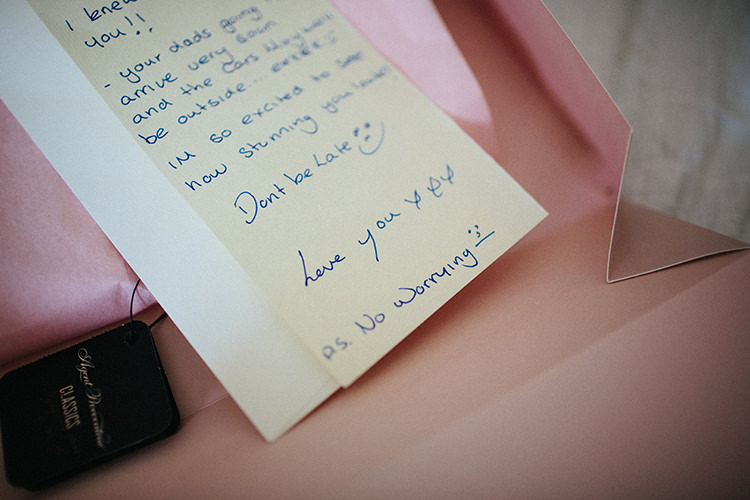 I knew
you!!
- your dads going
arrive very soon
and the cars
be outside....
im so excited to see
how stunning you
Dont be Late
Love you xxx
ps. No Worrying
Agent Provocateur
CLASSICS